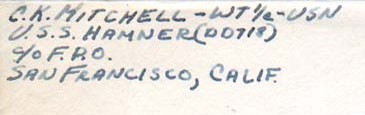 C.K. MITCHELL - WT 1/c - USN
U.S.S. HAMNER (DD718)
c/o F.P.O.
SAN FRANCISCO, CALIF.